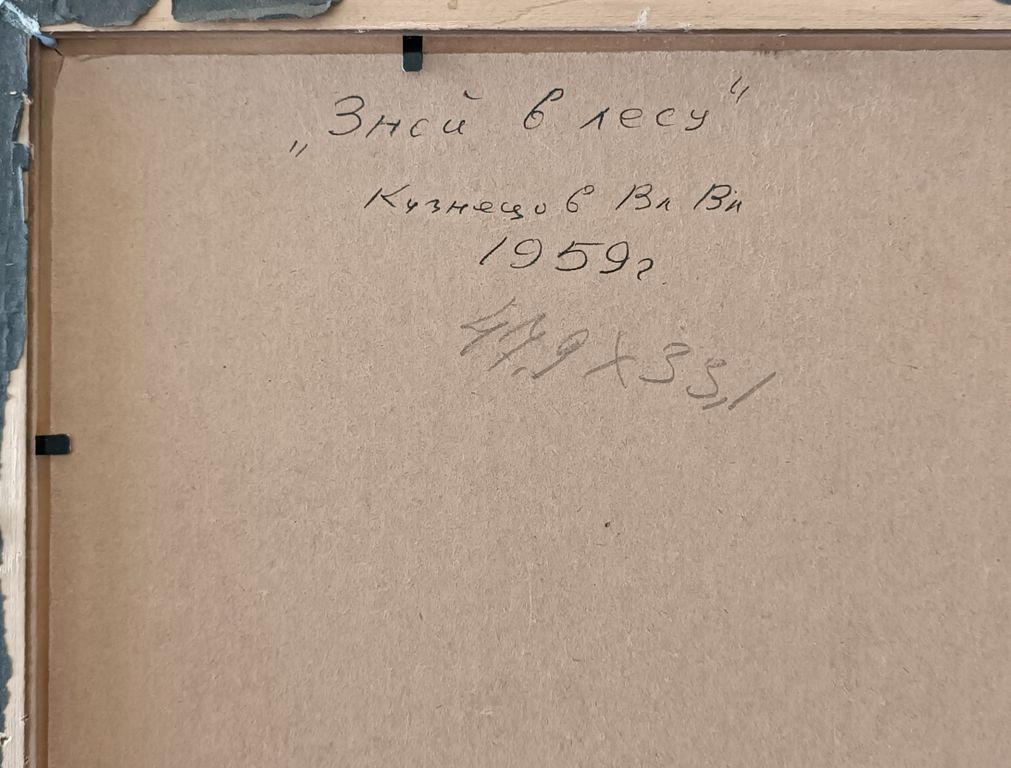 „Зной в лесу"
Кузнецов Вл Вл
1959г
47,9 X 33,1